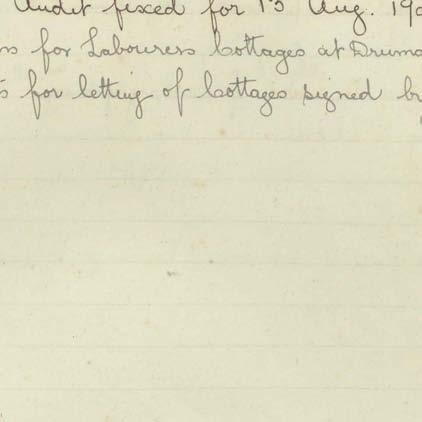 Audit fixed for 13 Aug. 19
ns for Labourers Cottages at Druma
s for letting of Cottages signed by